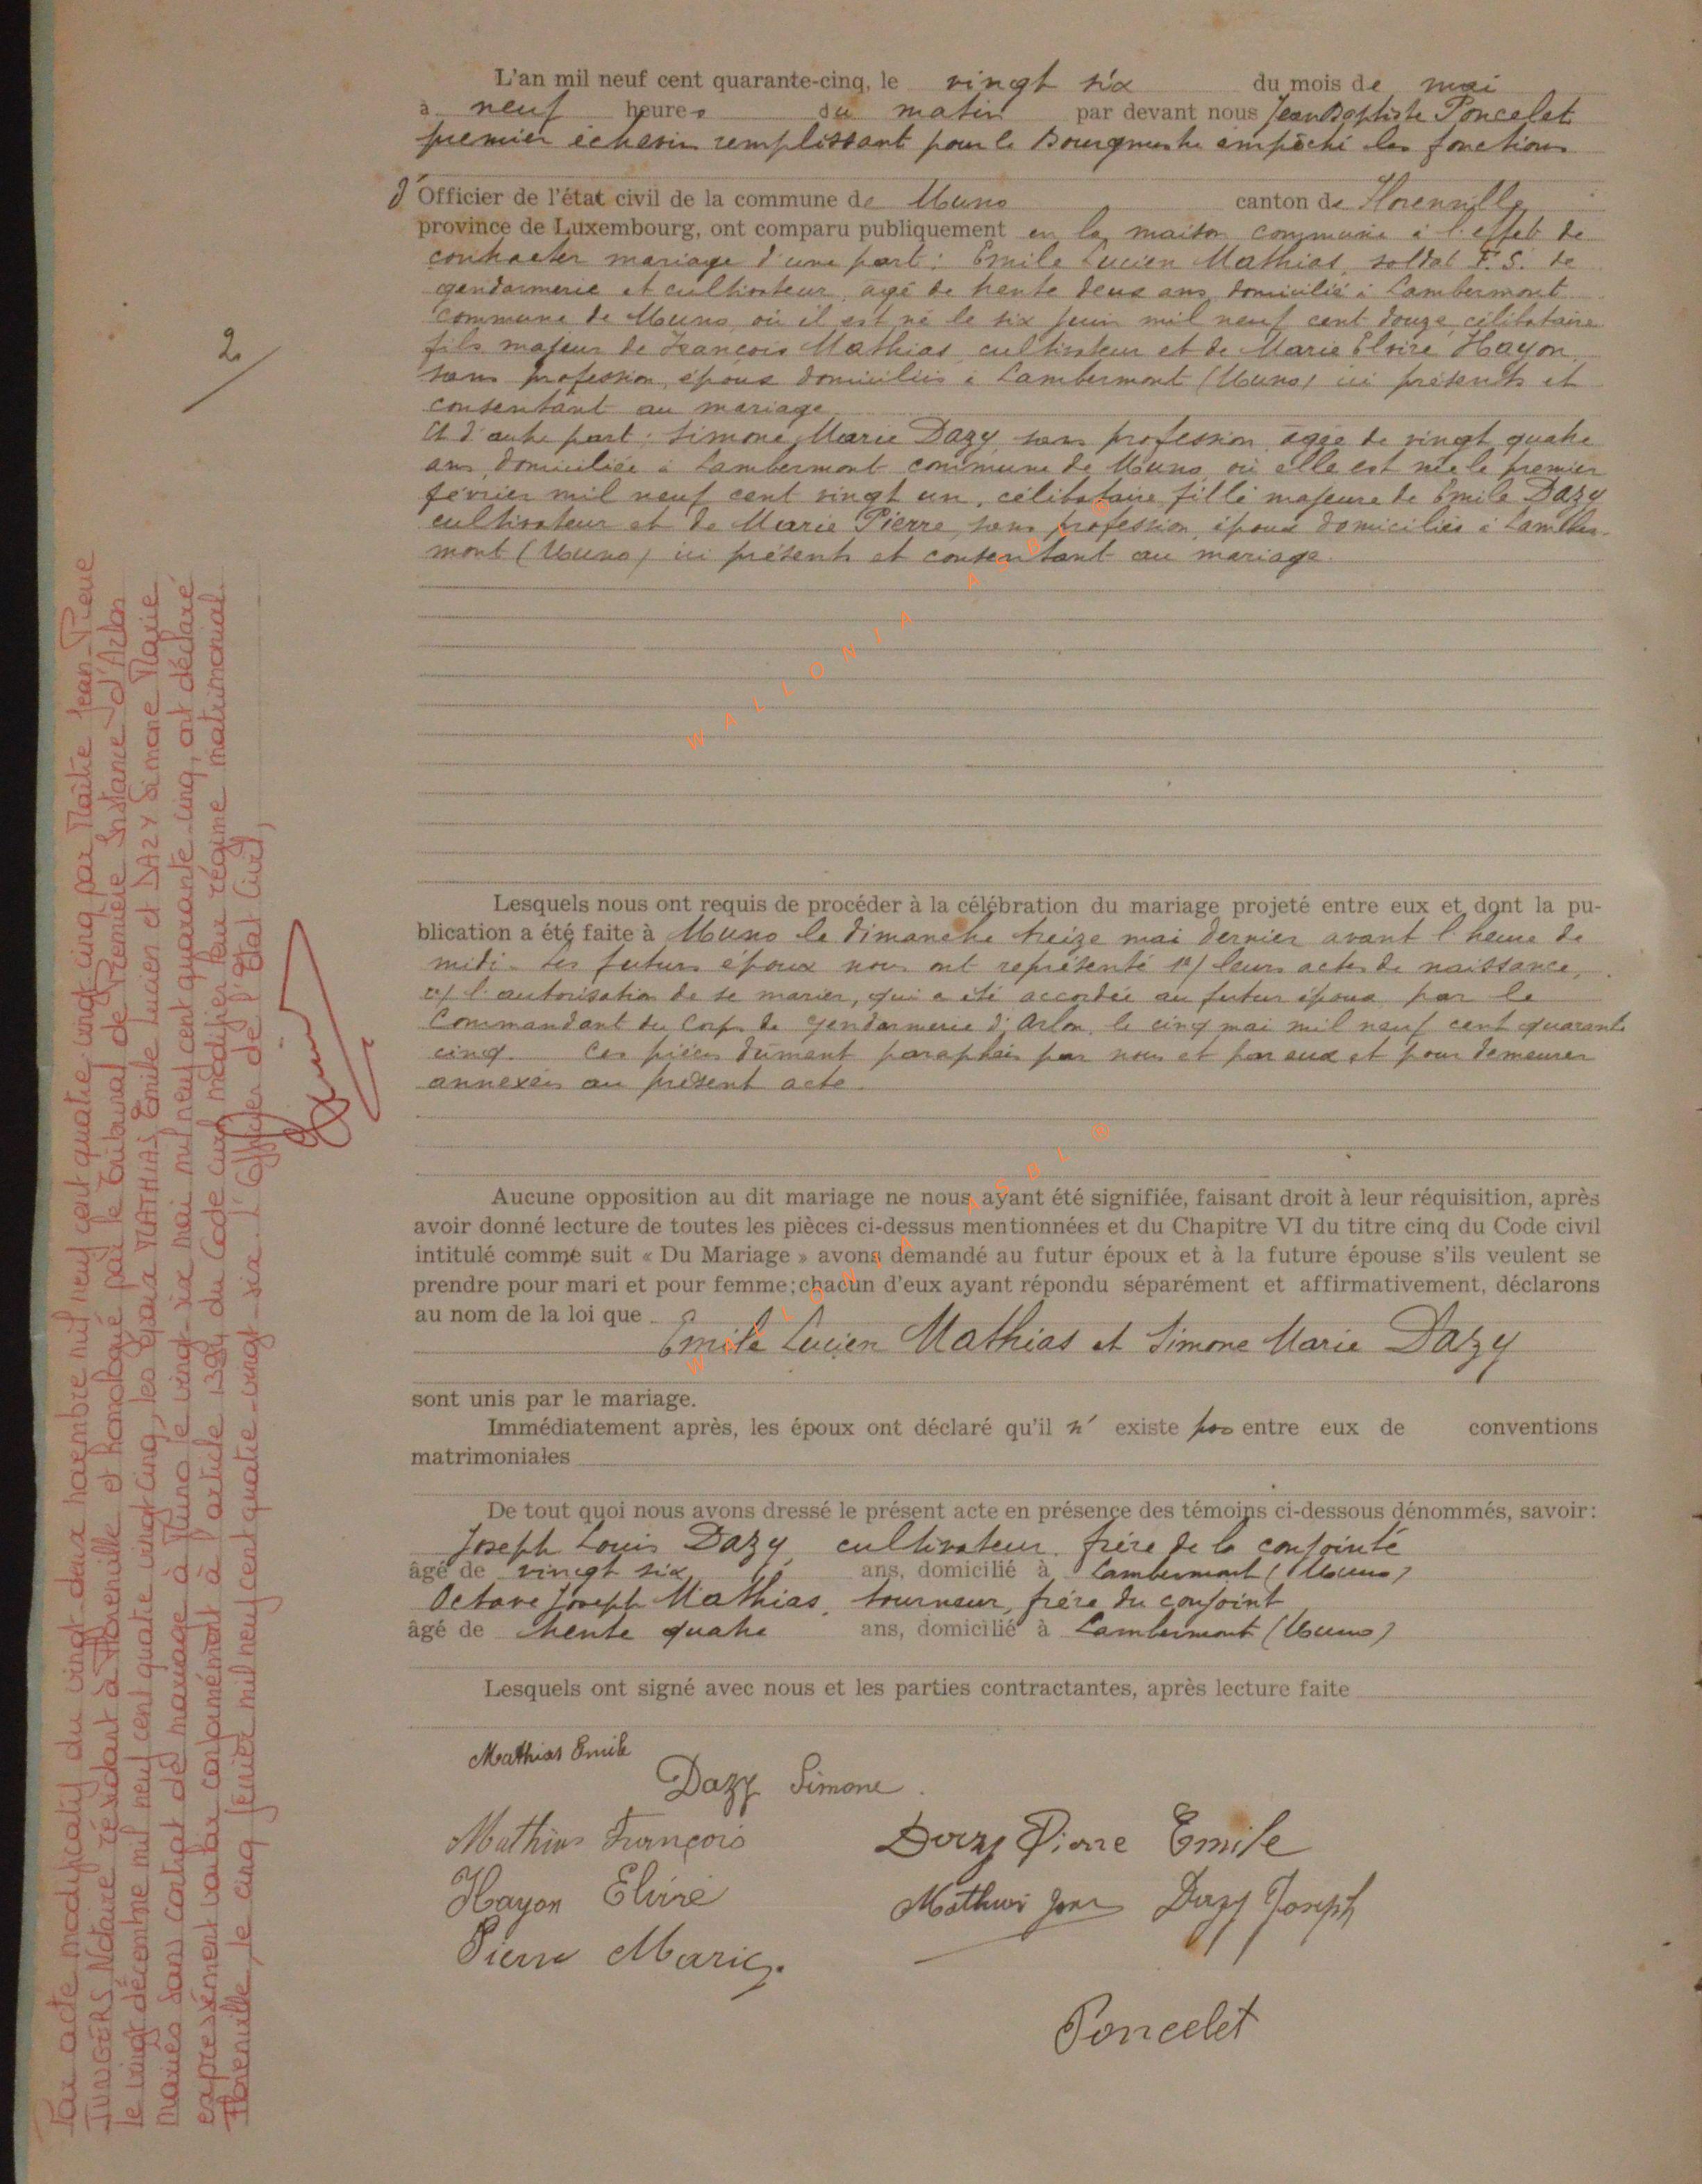 L'an mil neuf cent quarante-cinq, le vingt six du mois de mai
à neuf heures du matin par devant nous Jean Baptiste Poncelet
premier échevin remplissant pour le Bourgmestre empêché les fonctions
d'Officier de l'état civil de la commune de Muno canton de Florenville
province de Luxembourg, ont comparu publiquement en la maison commune à l'effet de
contracter mariage d'une part : Emile Lucien Mathias, soldat F.S. de
gendarmerie et cultivateur, agé de trente deux ans, domicilié à Lambermont
commune de Muno, où il est né le six juin mil neuf cent douze, célibataire
fils majeur de François Mathias, cultivateur et de Marie Elvire Hayon,
sans profession, époux domiciliés à Lambermont (Muno) ici présents et
consentant au mariage
Et d'autre part : Simone Marie Dazy, sans profession, âgée de vingt quatre
ans, domiciliée à Lambermont commune de Muno, où elle est née le premier
février mil neuf cent vingt un, célibataire fille majeure de Emile Dazy
cultivateur et de Marie Pierre, sans profession, époux domiciliés à Lamber-
mont (Muno) ici présents et consentant au mariage.
Lesquels nous ont requis de procéder à la célébration du mariage projeté entre eux et dont la pu-
blication a été faite à Muno le dimanche treize mai dernier avant l'heure de
midi. Les futurs époux nous ont représenté 1°/ leurs actes de naissance,
2°/ l'autorisation de se marier, qui a été accordée au futur époux par le
Commandant du Corps de gendarmerie d'Arlon, le cinq mai mil neuf cent quarante
cinq. Ces pièces dûment paraphées par nous et par eux et pour demeurer
annexées au présent acte.
Aucune opposition au dit mariage ne nous ayant été signifiée, faisant droit à leur réquisition, après
avoir donné lecture de toutes les pièces ci-dessus mentionnées et du Chapitre VI du titre cinq du Code civil
intitulé comme suit « Du Mariage » avons demandé au futur époux et à la future épouse s'ils veulent se
prendre pour mari et pour femme; chacun d'eux ayant répondu séparément et affirmativement, déclarons
au nom de la loi que
Emile Lucien Mathias et Simone Marie Dazy
sont unis par le mariage.
Immédiatement après, les époux ont déclaré qu'il n' existe pas entre eux de conventions
matrimoniales
De tout quoi nous avons dressé le présent acte en présence des témoins ci-dessous dénommés, savoir:
Joseph Louis Dazy, cultivateur, frère de la conjointe
âgé de vingt six ans, domicilié à Lambermont (Muno)
Octave Joseph Mathias, tourneur, frère du conjoint
âgé de trente quatre ans, domicilié à Lambermont (Muno)
Lesquels ont signé avec nous et les parties contractantes, après lecture faite
Mathias Emile
Dazy Simone.
Mathias François
Dazy Pierre Emile
Hayon Elvire
Dazy Joseph
Pierre Marie
Poncelet
2
Par acte modificatif du vingt deux novembre mil neuf cent quatre vingt cinq par Maître Jean-Pierre
JUNGERS Notaire résidant à Florenville et homologué par le Tribunal de Première Instance d'Arlon
le vingt décembre mil neuf cent quatre vingt cinq, les époux MATHIAS Emile Lucien et DAZY Simone Marie
mariés sans contrat de mariage à Muno le vingt-six mai mil neuf cent quarante cinq, ont déclaré
expressément vouloir conformément à l'article 1394 du Code civil modifier leur régime matrimonial.
Florenville, le cinq février mil neuf cent quatre-vingt-six. L'Officier de l'Etat Civil,
WALLONIA ASBL ®
WALLONIA ASBL ®